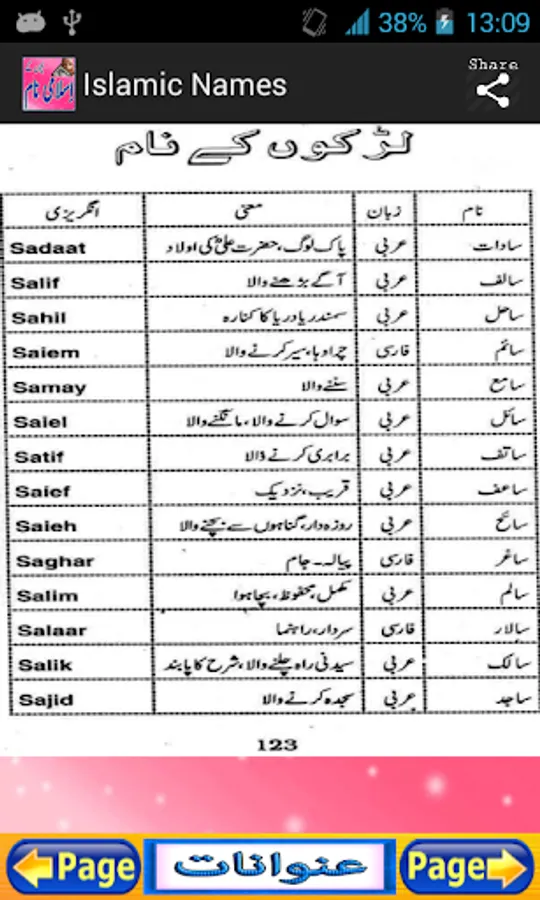 38% 13:09
اسلامی نام
Islamic Names
Share
لڑکوں کے نام
نام زبان معنی انگریزی
سادات عربی پاک لوگ، حضرت علیؓ کی اولاد Sadaat
سالف عربی آگے بڑھنے والا Salif
ساحل عربی سمندر یا دریا کا کنارہ Sahil
سائم فارسی چرواہا، سیر کرنے والا Saiem
سامع عربی سننے والا Samay
سائل عربی سوال کرنے والا، مانگنے والا Saiel
ساتف عربی برابری کرنے والا Satif
ساعف عربی قریب، نزدیک Saief
سائح عربی روزہ دار، گناہوں سے بچنے والا Saieh
ساغر فارسی پیالہ۔ جام Saghar
سالم عربی مکمل، محفوظ، بچا ہوا Salim
سالار فارسی سردار، راہنما Salaar
سالک عربی سیدنی راہ چلنے والا، شرح کا پابند Salik
ساجد عربی سجدہ کرنے والا Sajid
123
Page عنوانات Page